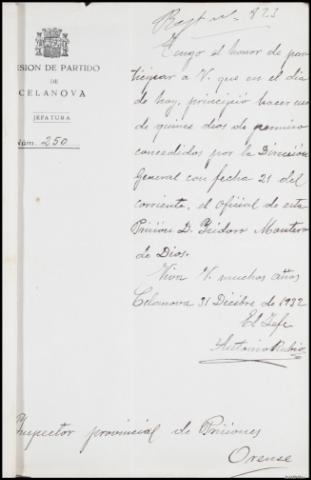 Regt nº 823
ISION DE PARTIDO
DE
CELANOVA
JEFATURA
Núm. 250
Tengo el honor de par
ticipar a V. que en el dia
de hoy, principió hacer uso
de quince dias de permiso
concedidos por la Dirección
General con fecha 21 del
corriente, el oficial de esta
Prisión D. Isidoro Montero
de Dios.
Viva V. muchos años
Celanova 31 Dicibre de 1932
El Jefe
Antonio Rubio
Inspector provincial de Prisiones
Orense